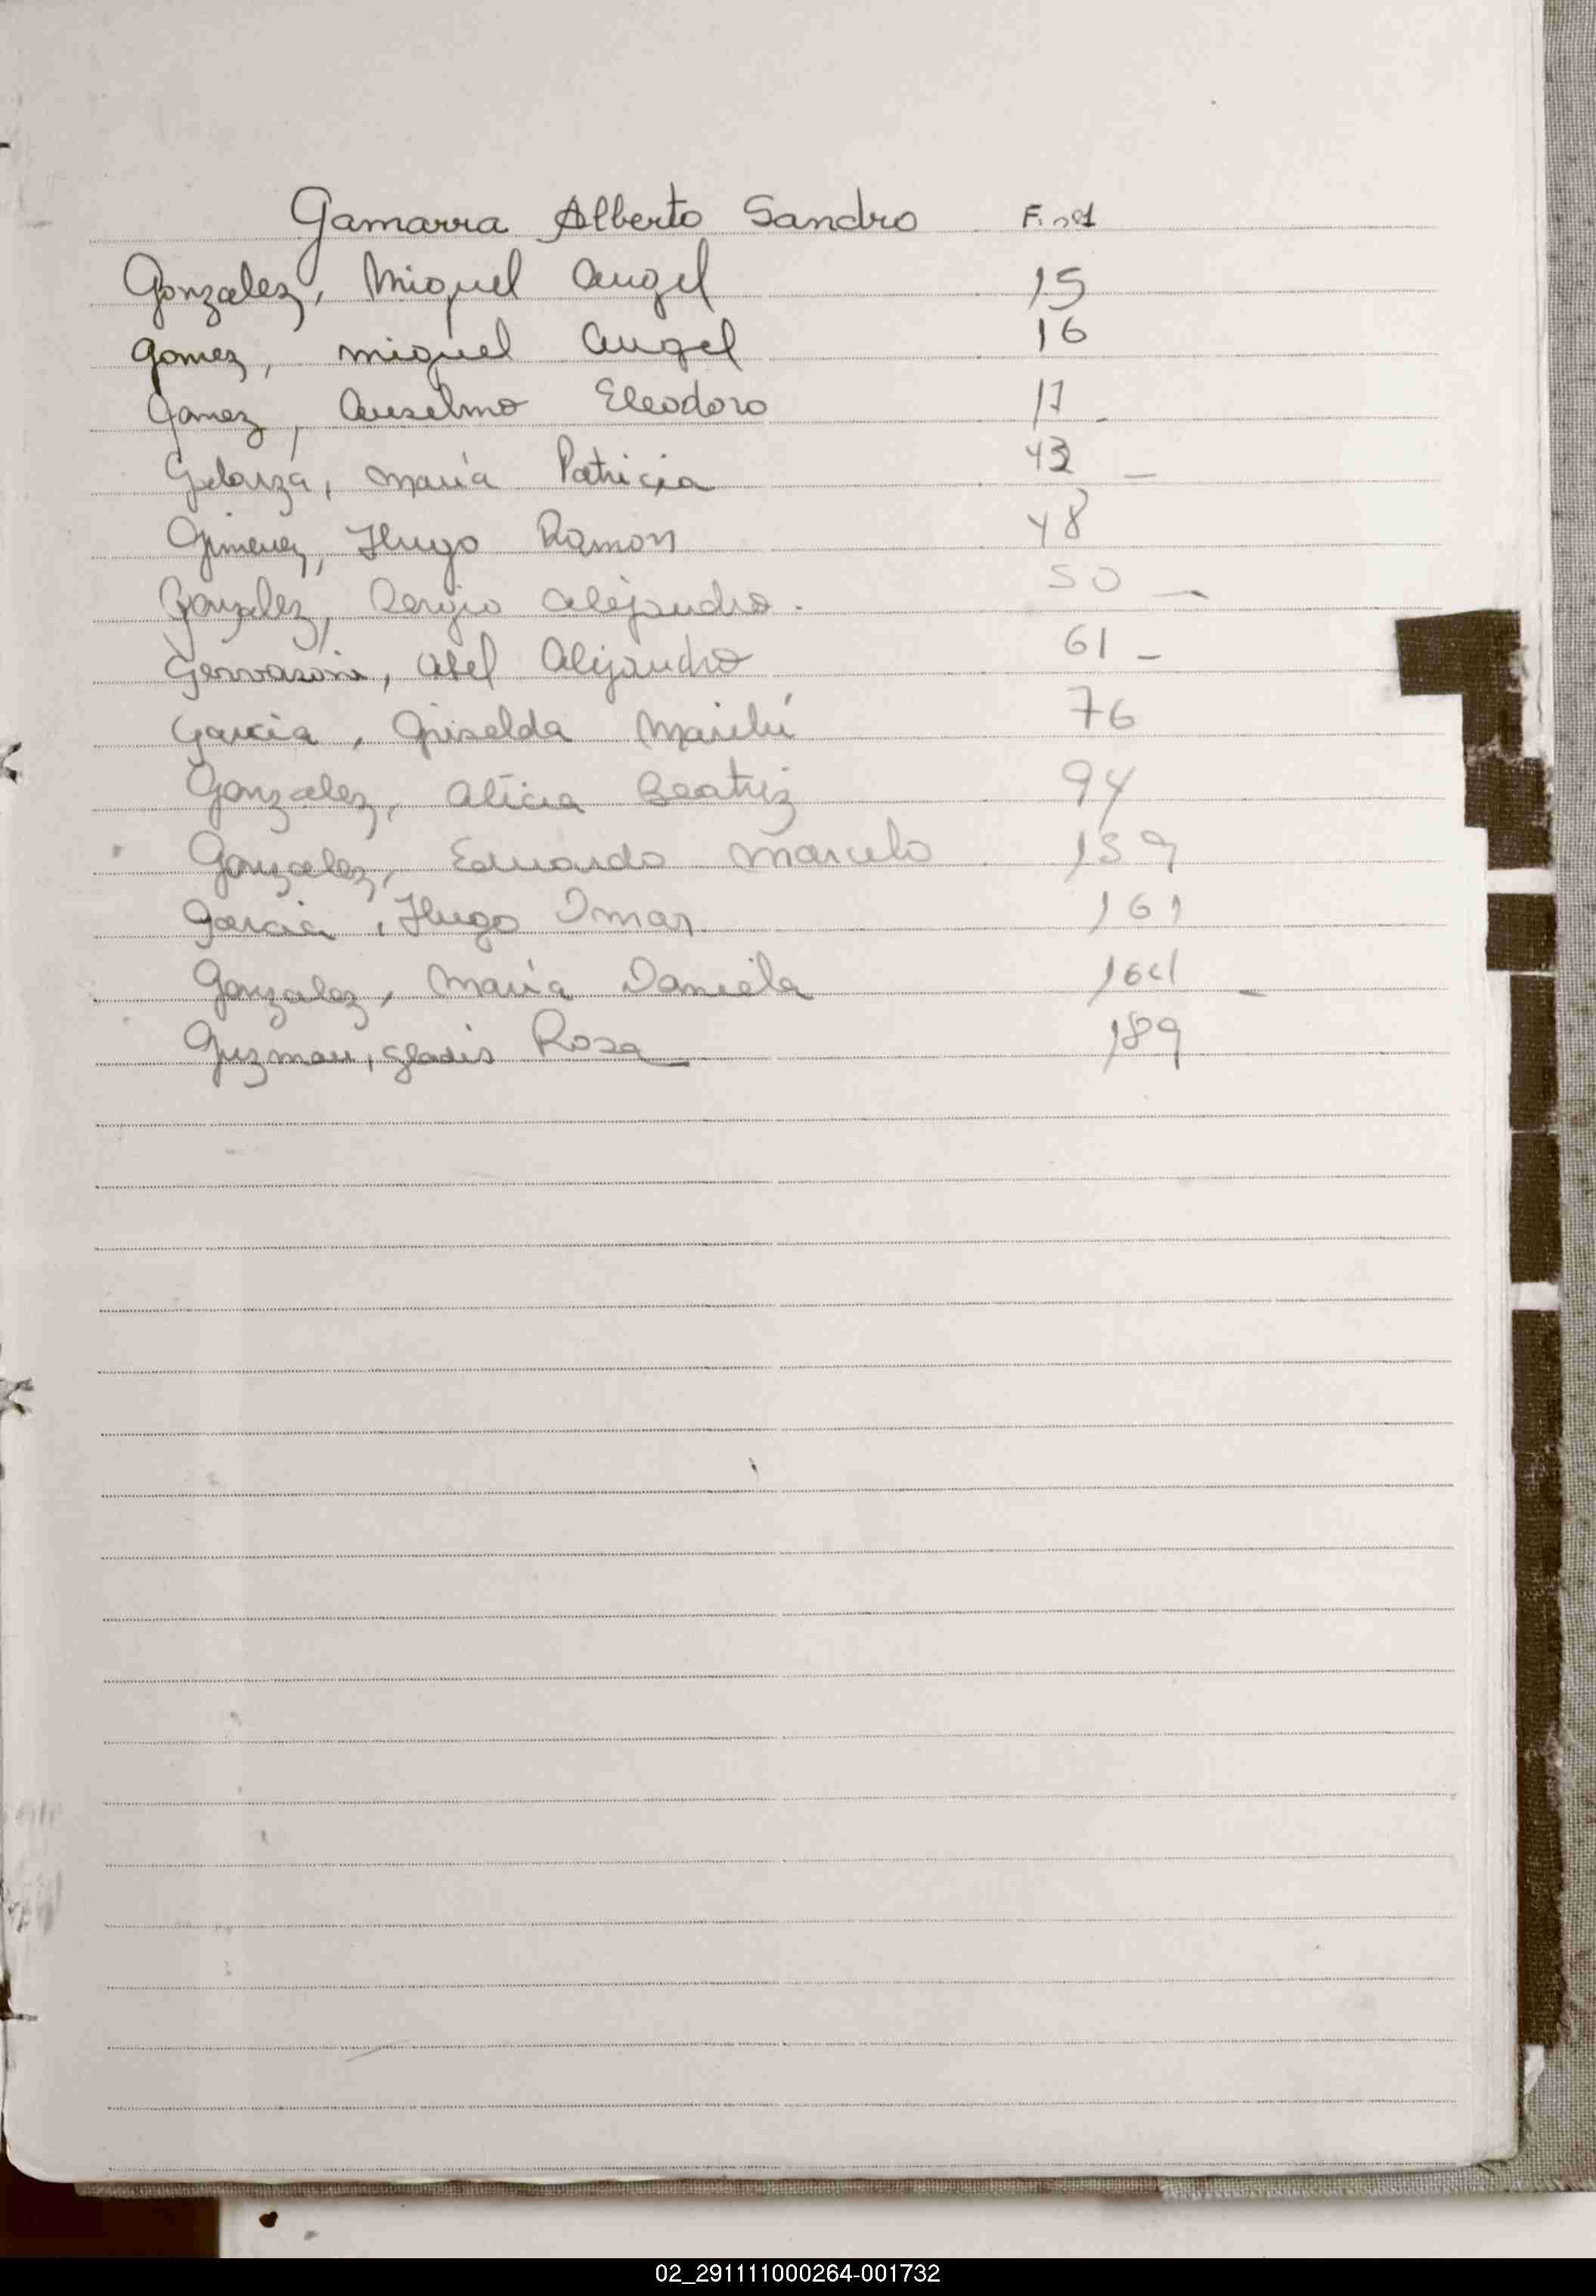 Gamarra Alberto Sandro F. nº1
Gonzalez, Miguel Angel 15
Gomez, Miguel Angel 16
Gomez, Anselmo Eleodoro 17 -
María Patricia
Gimenez, Hugo Ramon 48
Gonzalez, Sergio Alejandro. 50 -
Gervasoni, Abel Alejandro 61 -
Garcia, Griselda Marilú 76
Gonzalez, Alicia Beatriz 94
Gonzalez, Eduardo Marcelo 159
Garcia, Hugo Omar 161
Gonzalez, María Daniela 164 -
Guzman, Gladis Rosa 189
02_291111000264-001732